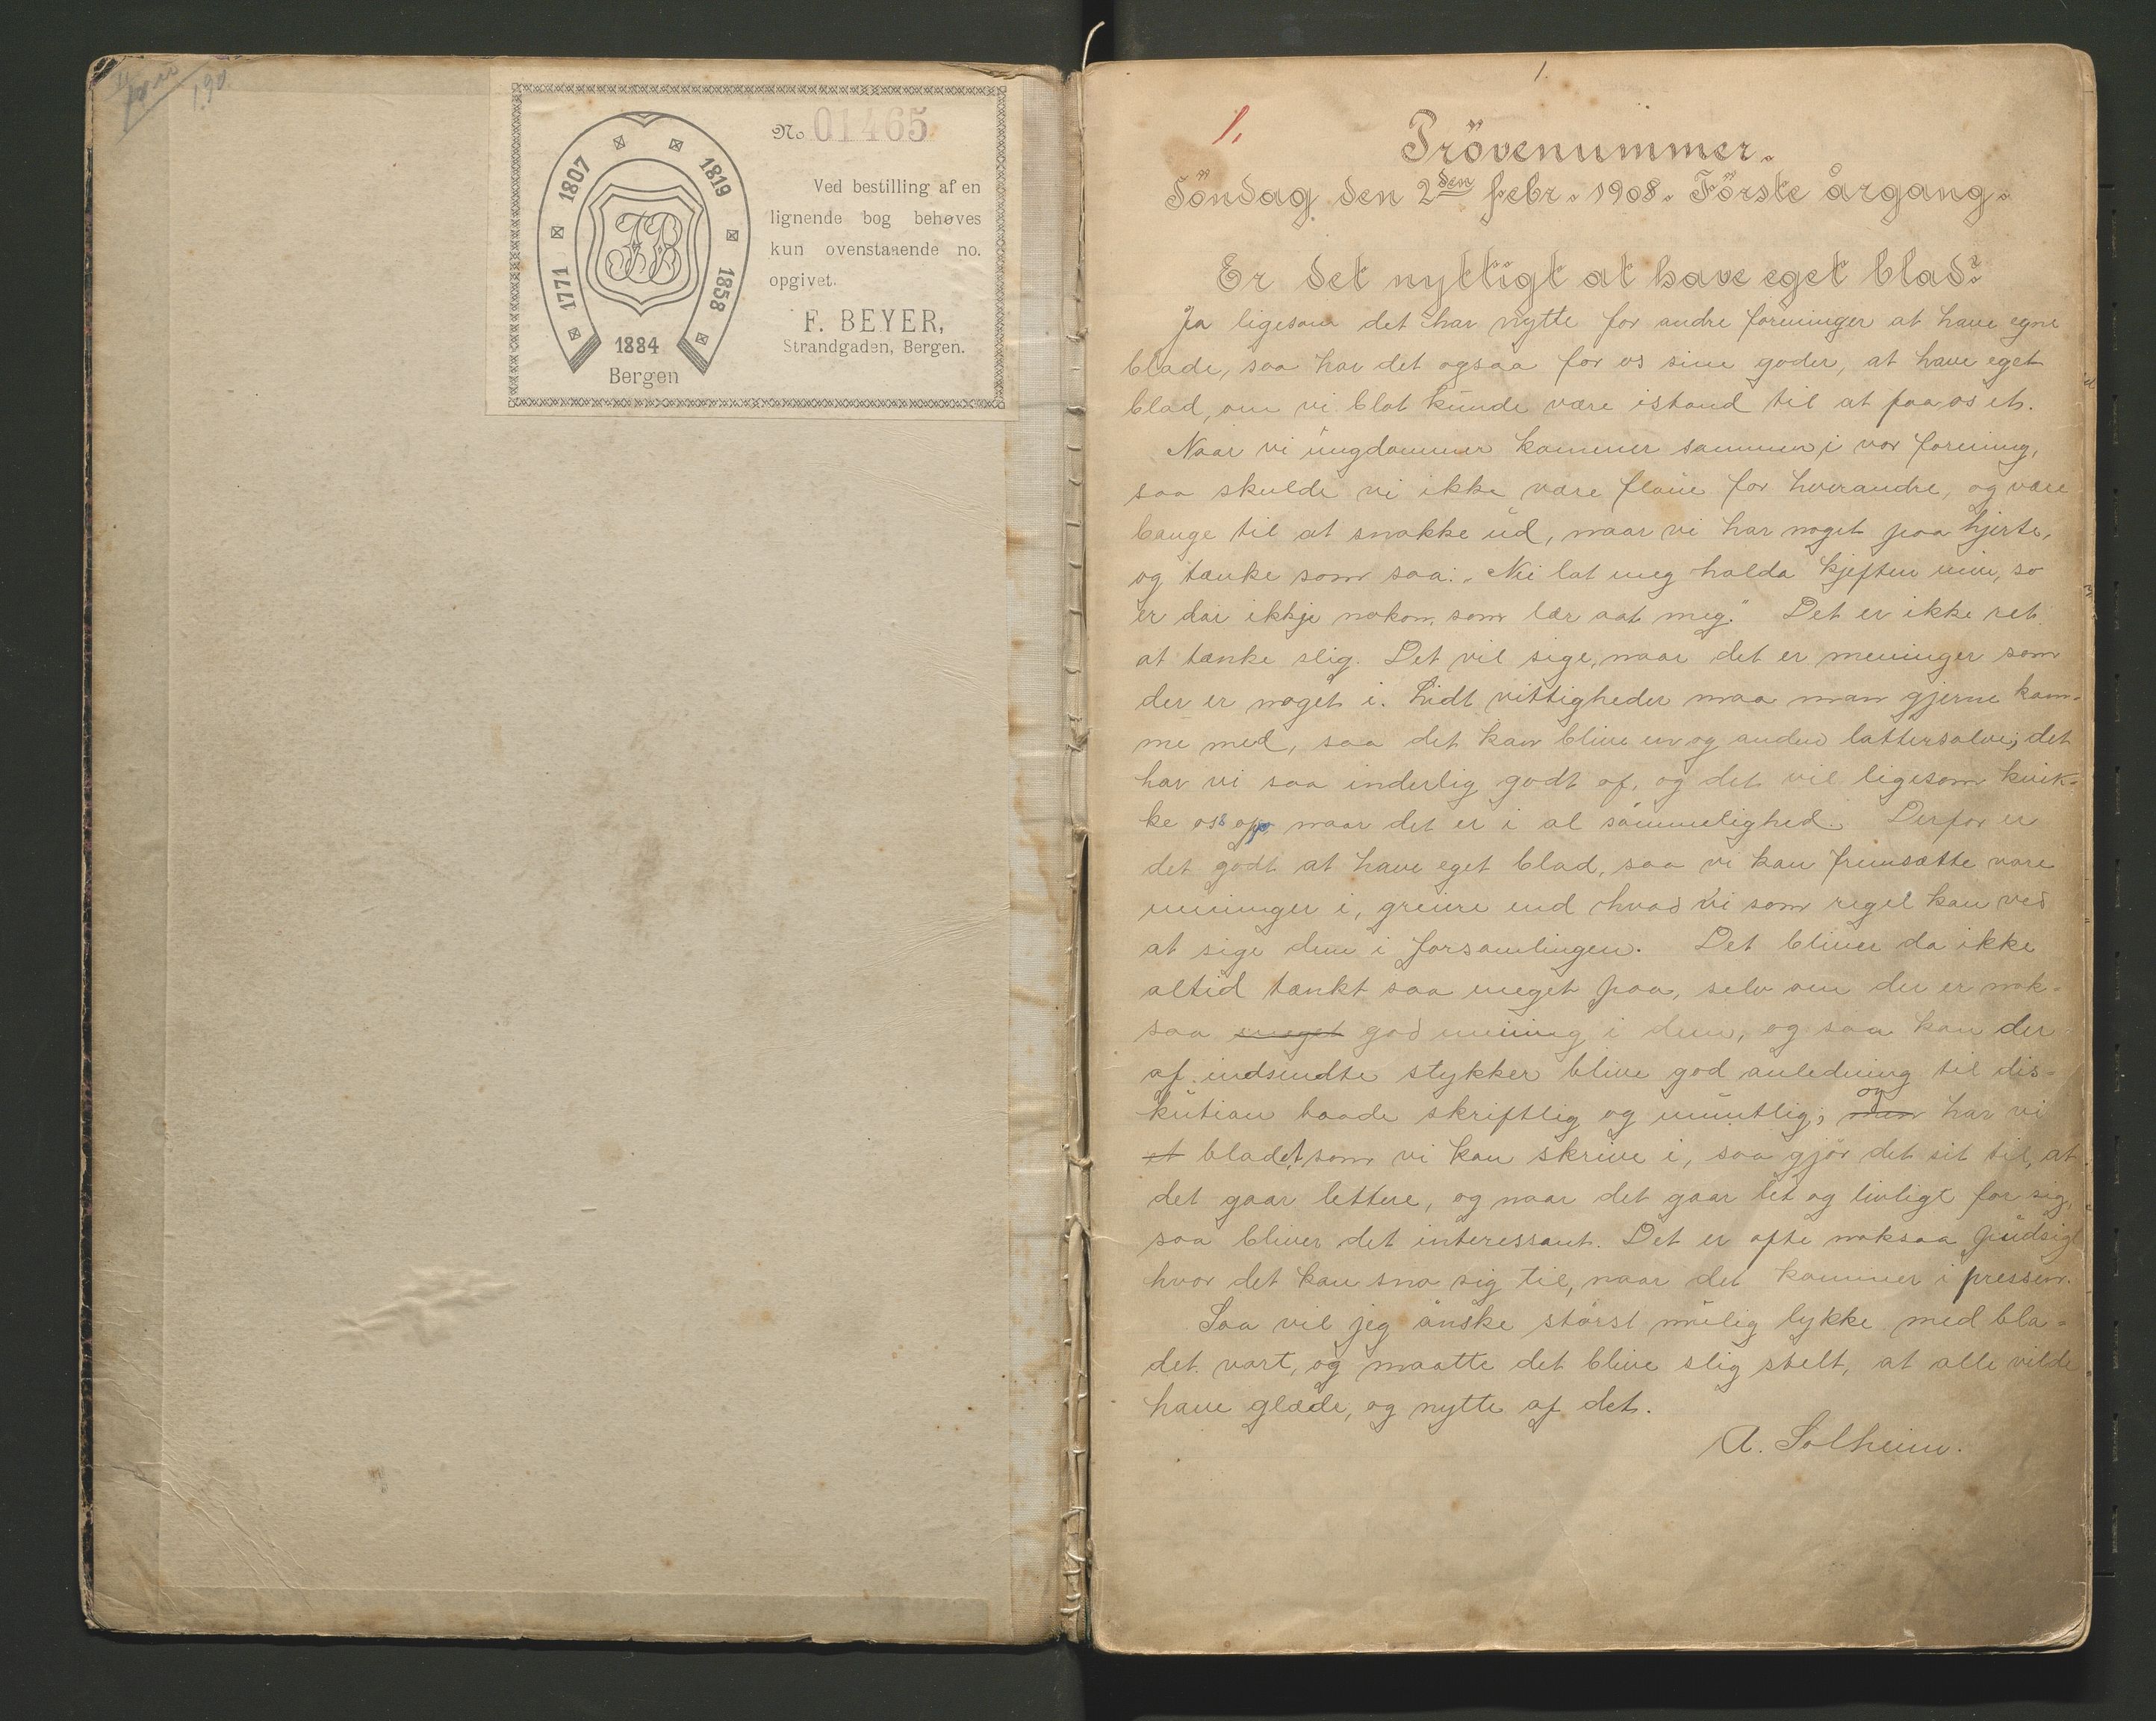 1,90
No 01465
1771 1807 1819 1858
1884
Bergen
Ved bestilling af en
lignende bog behøves
kun ovenstaaende no.
opgivet.
F. BEYER,
Strandgaden, Bergen.
1.
1.
Prövenummer.
Söndag den 2den febr. 1908. Förste årgang.
Er det nyttigt at have eget blad?
Ja ligesom det har nytte for andre foreninger at have egne
blade, saa har det ogsaa for os sine goder, at have eget
blad, om vi blot kunde være istand til at faa os et.
Naar vi ungdommer kommer sammen i vor forening,
saa skulde vi ikke være flaue for hverandre, og være
bange til at snakke ud, naar vi har noget paa hjerte,
og tænke som saa: „Nei lat meg halda kjeften min, so
er dar ikkje nokon som lær aat meg." Det er ikke ret
at tænke slig. Det vil sige, naar det er meninger som
der er noget i. Lidt vittigheder maa man gjerne kom-
me med, saa det kan blive en og anden lattersalve; det
har vi saa inderlig godt af, og det vil ligesom kvik-
ke oss opp naar det er i al sömmelighed. Derfor er
det godt at have eget blad, saa vi kan fremsætte vore
meninger i, greiere end hvad vi som regel kan ved
at sige dem i forsamlingen. Det bliver da ikke
altid tænkt saa meget paa, selv om der er nok-
saa meget god mening i dem, og saa kan der
af indsendte stykker blive god anledning til dis-
kution baade skriftlig og muntlig; og har vi
et bladet som vi kan skrive i, saa gjör det sit til, at
det gaar lettere, og naar det gaar let og livligt for sig,
saa bliver det interessant. Det er ofte noksaa pudsigt
hvor det kan sno sig til, naar det kommer i pressen.
Saa vil jeg önske störst mulig lykke med bla-
det vort, og maatte det blive slig stelt, at alle vilde
have glæde, og nytte af det.
A. Solheim.